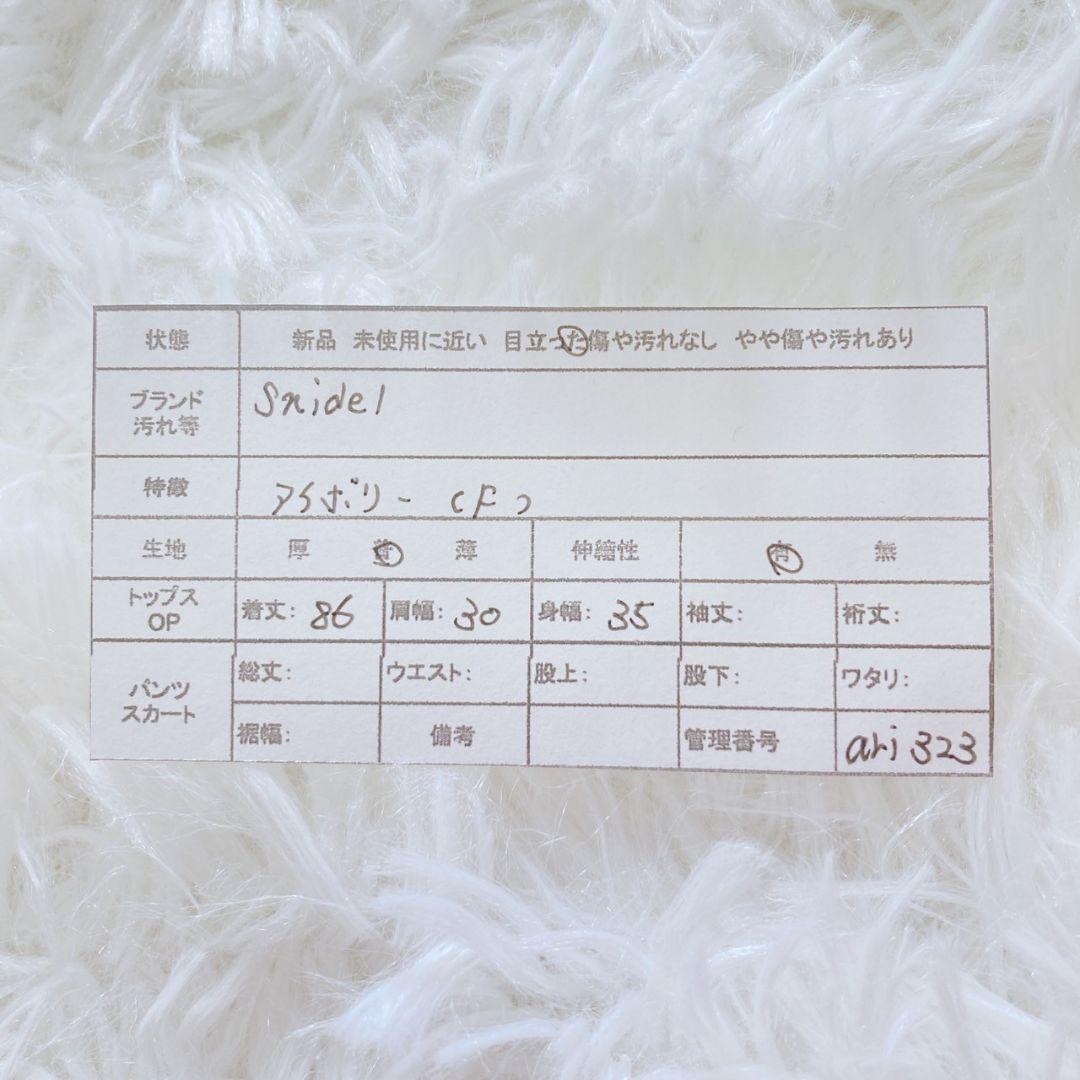 状態 新品 未使用に近い 目立った傷や汚れなし やや傷や汚れあり
ブランド
汚れ等
Snidel
特徴 アイボリー (F)
生地 厚 普 薄 伸縮性 有 無
トップス
OP
着丈: 86 肩幅: 30 身幅: 35 袖丈: 裄丈:
パンツ
スカート
総丈: ウエスト: 股上: 股下: ワタリ:
裾幅: 備考 管理番号 ari 323